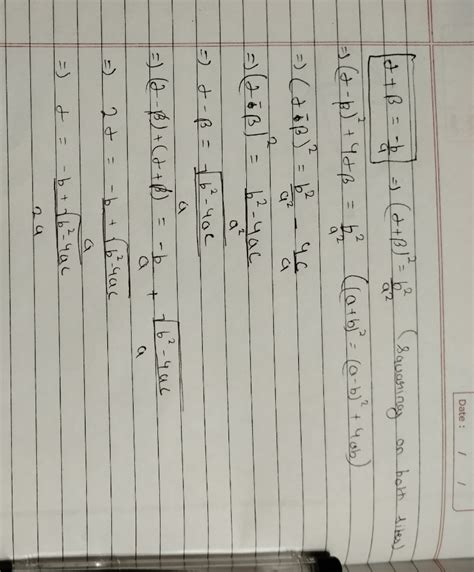 Date: / /
α+β = -b/a ⇒ (α+β)² = b²/a² (squaring on both sites)
⇒ (α-β)² + 4αβ = b²/a² ((a+b)² = (a-b)² + 4ab)
⇒ (α-β)² = b²/a² - 4c/a
⇒ (α-β)² = b²-4ac/a²
⇒ α-β = √b²-4ac/a
⇒ (α-β)+(α+β) = -b/a + √b²-4ac/a
⇒ 2α = -b+√b²-4ac/a
⇒ α = -b+√b²-4ac/2a